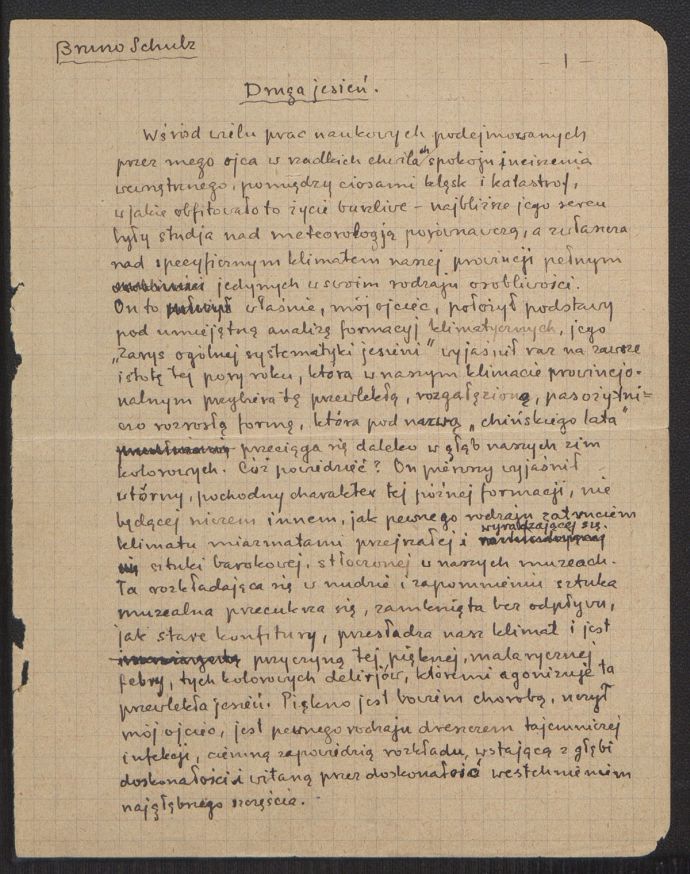 Bruno Schulz
- 1 -
Druga jesień.
Wśród wielu prac naukowych podejmowanych
przez mego ojca w rzadkich chwilach spokoju i uciszenia
wewnętrznego, pomiędzy ciosami klęsk i katastrof,
w jakie obfitowało to życie burzliwe – najbliższe jego sercu
były studja nad meteorologją porównawczą, a zwłaszcza
nad specyficznym klimatem naszej prowincji pełnym
jedynych w swoim rodzaju osobliwości.
On to właśnie, mój ojciec, położył podstawy
pod umiejętną analizę formacyj klimatycznych, jego
„Zarys ogólnej systematyki jesieni” wyjaśnił raz na zawsze
istotę tej pory roku, która w naszym klimacie prowincjo-
nalnym przybiera tę przewlekłą, rozgałęzioną, pasożytni=
czo rozrosłą formę, która pod nazwą „chińskiego lata”
przeciąga się daleko w głąb naszych zim
kolorowych. Cóż powiedzieć? On pierwszy wyjaśnił
wtórny, pochodny charakter tej późnej formacji, nie
będącej niczem innem, jak pewnego rodzaju zatruciem
klimatu miazmatami przejrzałej i wyradzającej się
sztuki barokowej, stłoczonej w naszych muzeach.
Ta rozkładająca się w nudzie i zapomnieniu sztuka
muzealna przecukrza się, zamknięta bez odpływu,
jak stare konfitury, przesładza nasz klimat i jest
przyczyną tej pięknej, malarycznej
febry, tych kolorowych delirjów, któremi agonizuje ta
przewlekła jesień. Piękno jest bowiem chorobą, uczył
mój ojciec, jest pewnego rodzaju dreszczem tajemniczej
infekcji, ciemną zapowiedzią rozkładu, wstającą z głębi
doskonałości i witaną przez doskonałość westchnieniem
najgłębszego szczęścia.